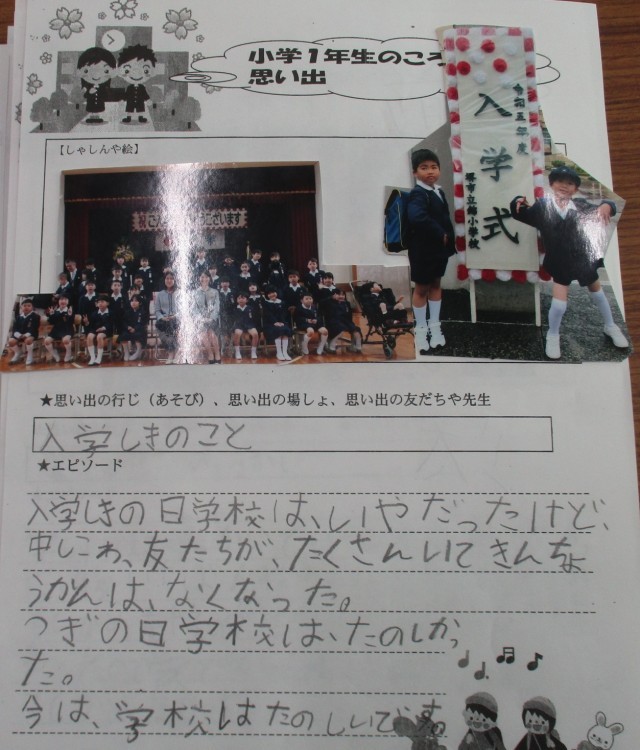 小学1年生のころ
思い出
【しゃしんや絵】
ございます
令和五年度
入学式
堺市立錦小学校
★思い出の行じ（あそび）、思い出の場しょ、思い出の友だちや先生
入学しきのこと
★エピソード
入学しきの日学校は、いやだったけど、
中しこわ、友たちが、たくさんいてきんちょ
うかんは、なくなった。
つぎの日学校は、たのしかっ
た。
今は、学校はたのしいです。